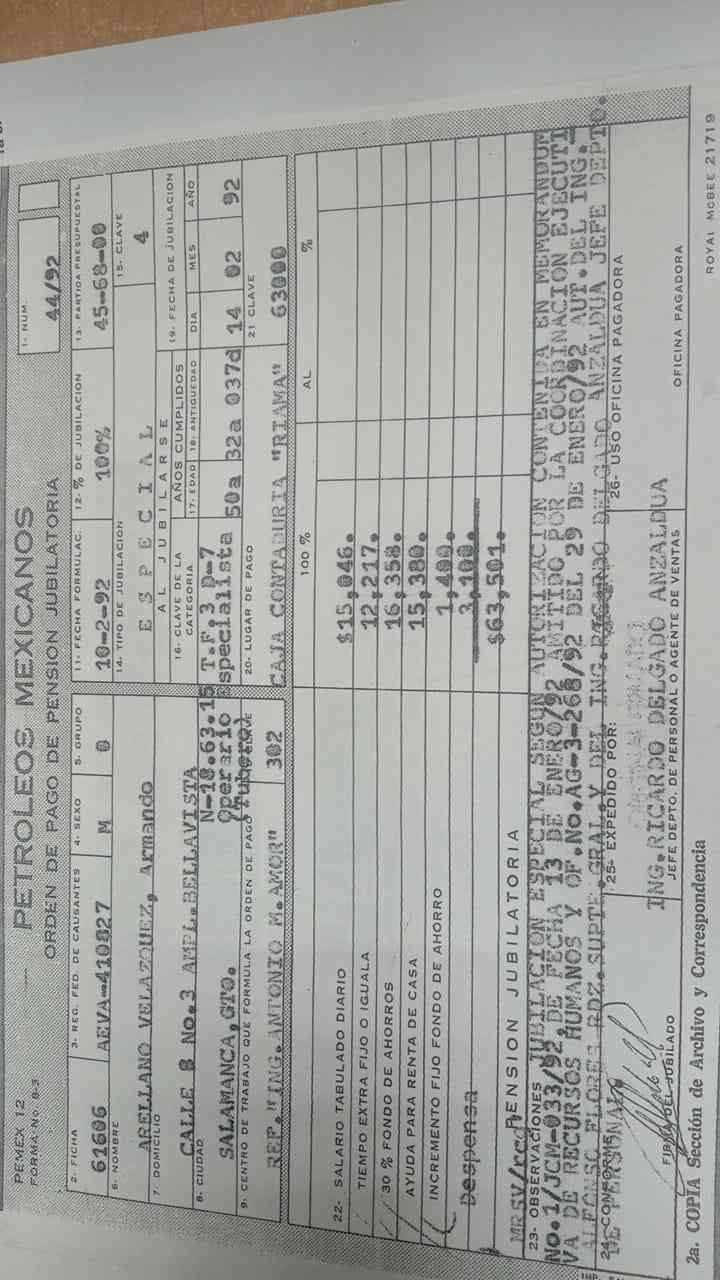 PEMEX 12
FORMA-No. B-3
PETROLEOS MEXICANOS
ORDEN DE PAGO DE PENSION JUBILATORIA
1- NUM.
44/92
2- FICHA
61606
3- REG. FED. DE CAUSANTES
AEVA-410827
4- SEXO
M
5- GRUPO
0
11- FECHA FORMULAC.
10-2-92
12- % DE JUBILACION
100%
13- PARTIDA PRESUPUESTAL
45-68-00
6- NOMBRE
ARELLANO VELAZQUEZ, Armando
14- TIPO DE JUBILACION
E S P E C I A L
15- CLAVE
4
7- DOMICILIO
CALLE 8 No.3 AMPL.BELLAVISTA
AL JUBILARSE
16- CLAVE DE LA CATEGORIA
N-18.63.15 T.F.3 D-7
Operario especialista
(Tubero)
AÑOS CUMPLIDOS
17- EDAD
50a
18- ANTIGUEDAD
32a 037d
19- FECHA DE JUBILACION
DIA MES AÑO
14 02 92
8- CIUDAD
SALAMANCA,GTO.
9- CENTRO DE TRABAJO QUE FORMULA LA ORDEN DE PAGO
REF."ING.ANTONIO M.AMOR"
CLAVE
302
20- LUGAR DE PAGO
CAJA CONTADURIA "RIAMA"
21 CLAVE
63000
100 %
AL
%
22- SALARIO TABULADO DIARIO $15,046.
TIEMPO EXTRA FIJO O IGUALA 12,217.
30 % FONDO DE AHORROS 16,358.
AYUDA PARA RENTA DE CASA 15,380.
INCREMENTO FIJO FONDO DE AHORRO 1,400.
Despensa 3,100.
PENSION JUBILATORIA $63,501.
MRSV/rcd
23- OBSERVACIONES JUBILACION ESPECIAL SEGUN AUTORIZACION CONTENIDA EN MEMORANDUM
No.1/JCM-033/92,DE FECHA 13 DE ENERO/92 AMITIDO POR LA COORDINACION EJECUTI
VA DE RECURSOS HUMANOS Y OF.No.AG-3-268/92 DEL 29 DE ENERO/92 AUT.DEL ING.
ALFONSO FLORES RDZ.SUPTE.GRAL.Y DEL ING.RICARDO DELGADO ANZALDUA JEFE DEPTO.
DE PERSONAL.
24- CONFORME
FIRMA DEL JUBILADO
25- EXPEDIDO POR:
ING.RICARDO DELGADO ANZALDUA
JEFE DEPTO. DE PERSONAL O AGENTE DE VENTAS
26- USO OFICINA PAGADORA
OFICINA PAGADORA
2a. COPIA Sección de Archivo y Correspondencia
ROYAL MCBEE 21719